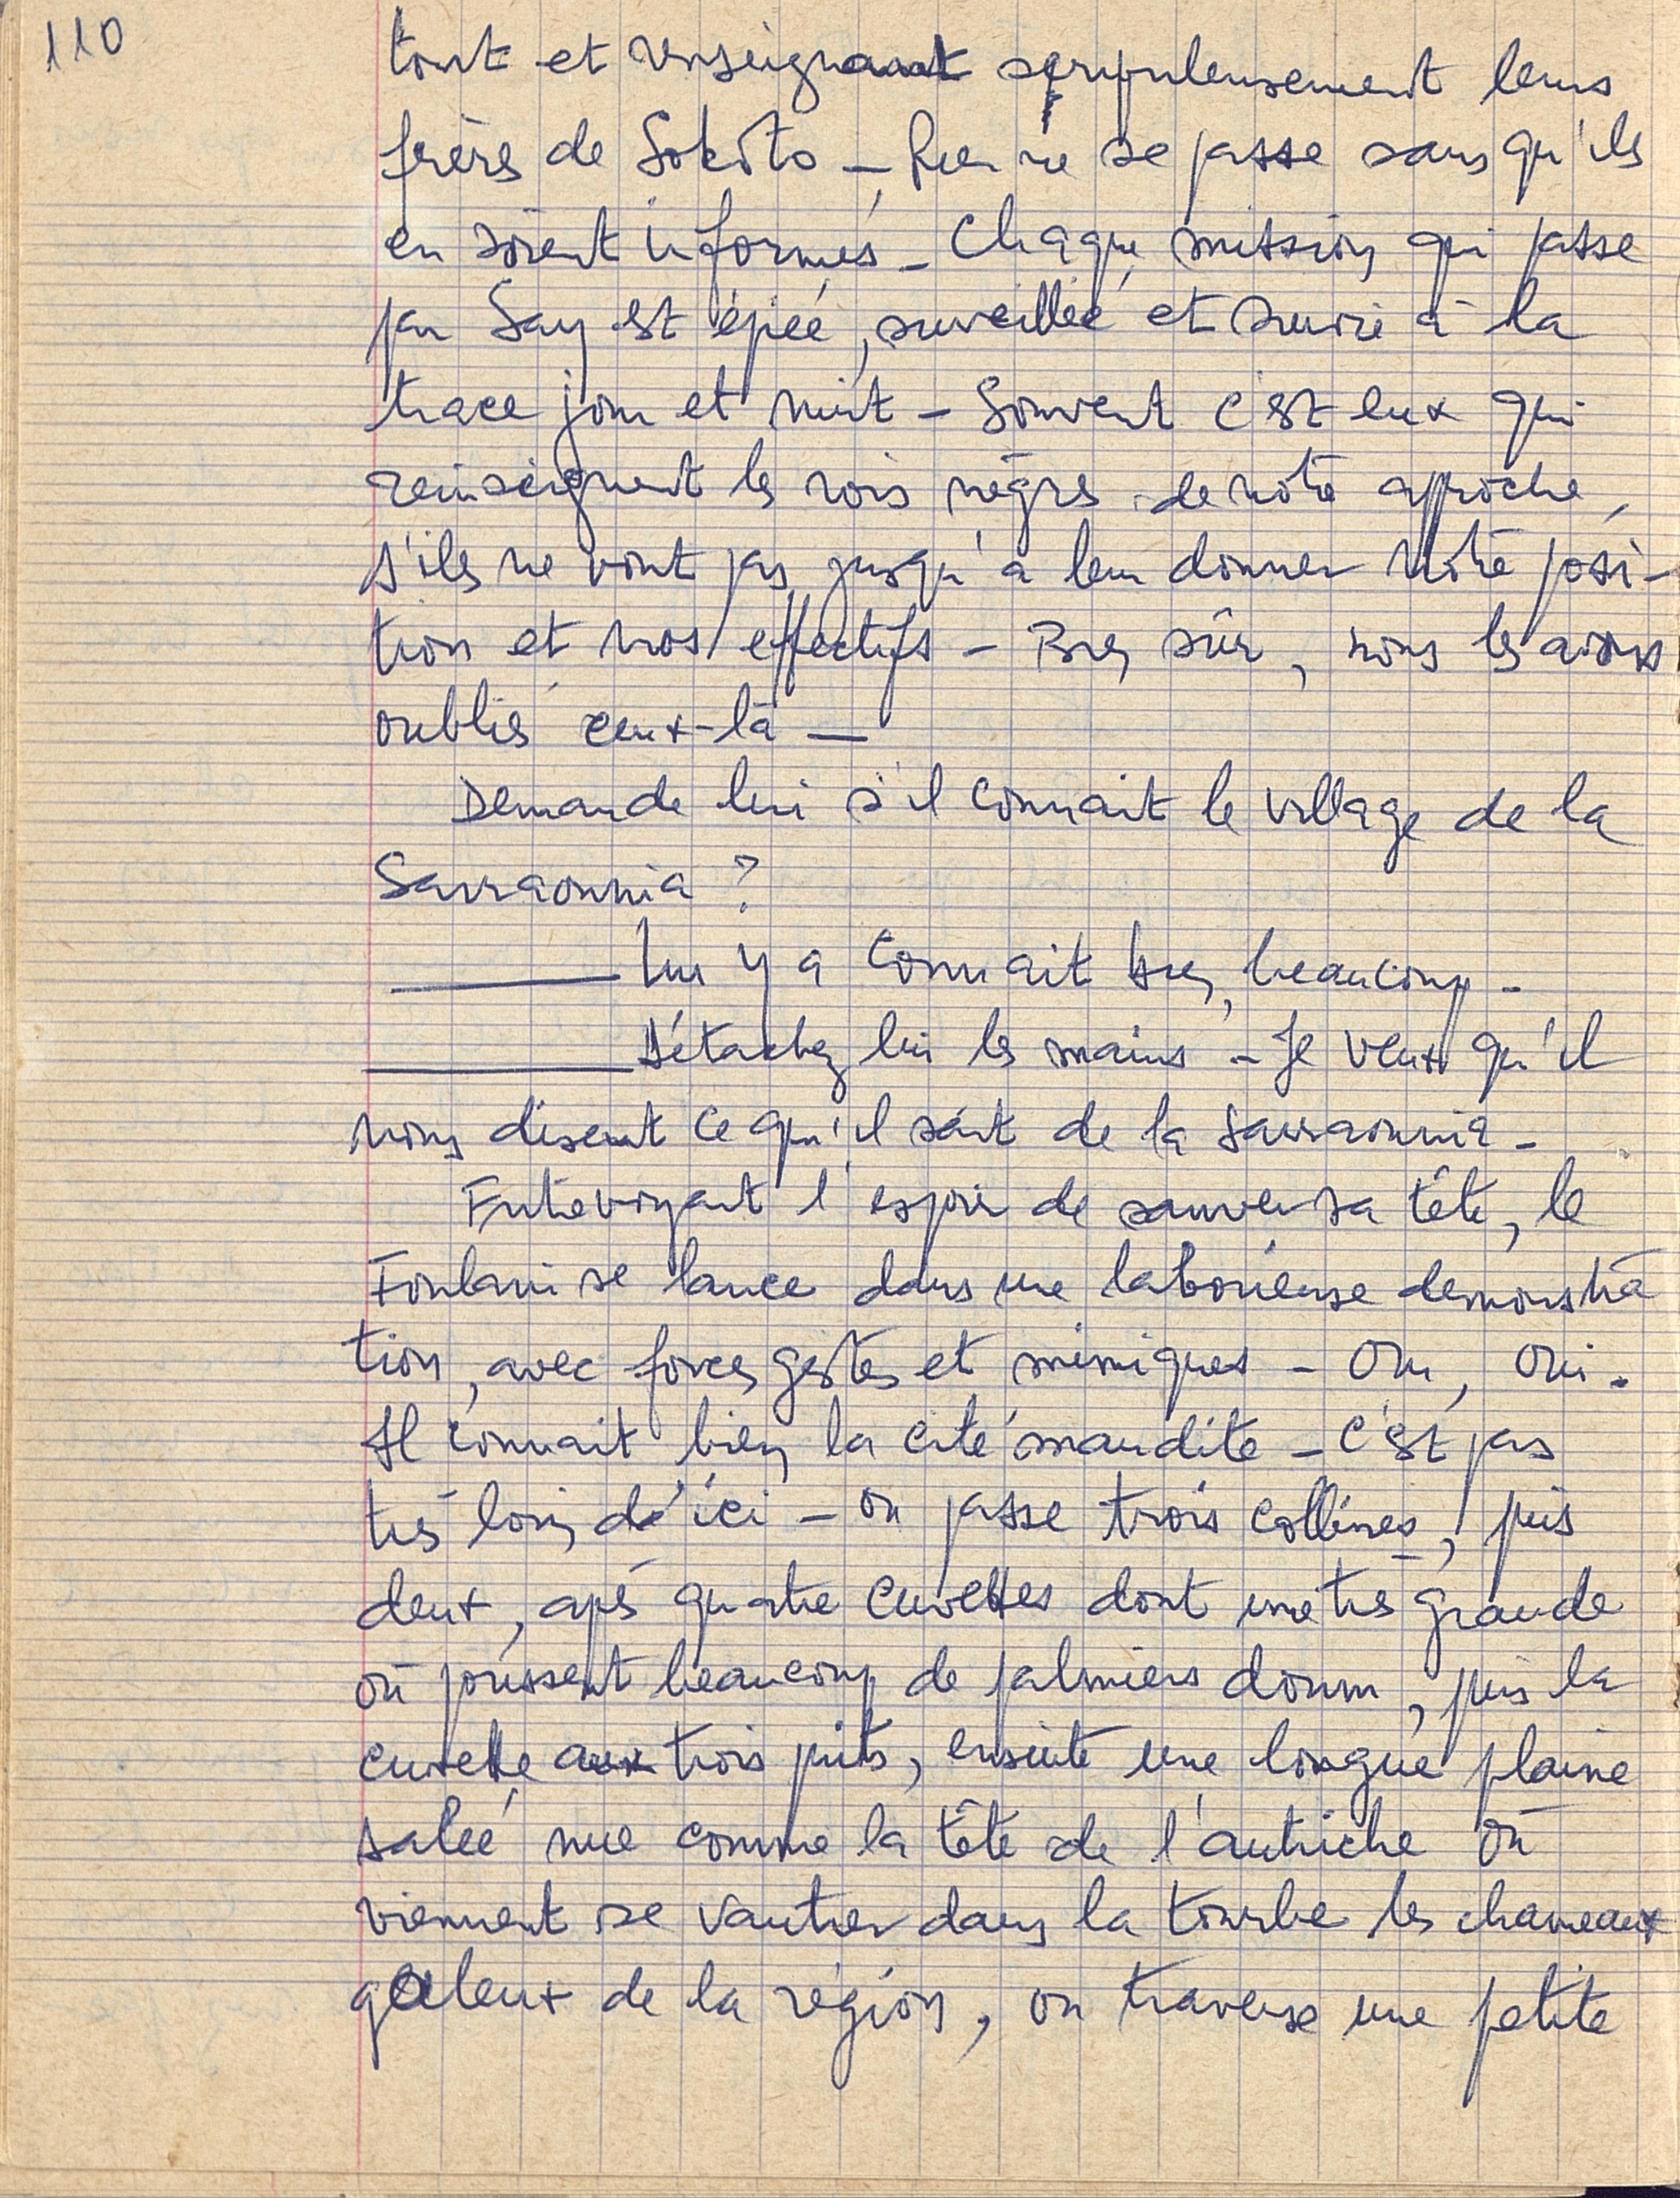 110
tout et renseignant scrupuleusement leurs
frères de Sokoto – Rien ne se passe sans qu'ils
en soient informés – Chaque mission qui passe
par Say est épiée, surveillée et suivie à la
trace jour et nuit – Souvent c'est eux qui
renseignent les rois nègres de notre approche,
s'ils ne vont pas jusqu'à leur donner notre posi-
tion et nos effectifs – Bien sûr, nous les avions
oubliés ceux-là –
Demande lui s'il connait le village de la
Sarraounia ?
— Lui y a connait bien, beaucoup –
— Détachez lui les mains – Je veux qu'il
nous disent ce qu'il sait de la Sarraounia –
Entrevoyant l'espoir de sauver sa tête, le
Foulani se lance dans une laborieuse demonstra
tion, avec forces gestes et mimiques – Oui, oui.
Il connait bien la cité maudite – C'est pas
très loin d'ici – On passe trois collines, puis
deux, après quatre cuvettes dont une très grande
où poussent beaucoup de palmiers doum, puis la
cuvette aux trois puits, ensuite une longue plaine
salée nue comme la tête de l'autriche où
viennent se vautrer dans la tourbe les chameaux
galeux de la région, on traverse une petite